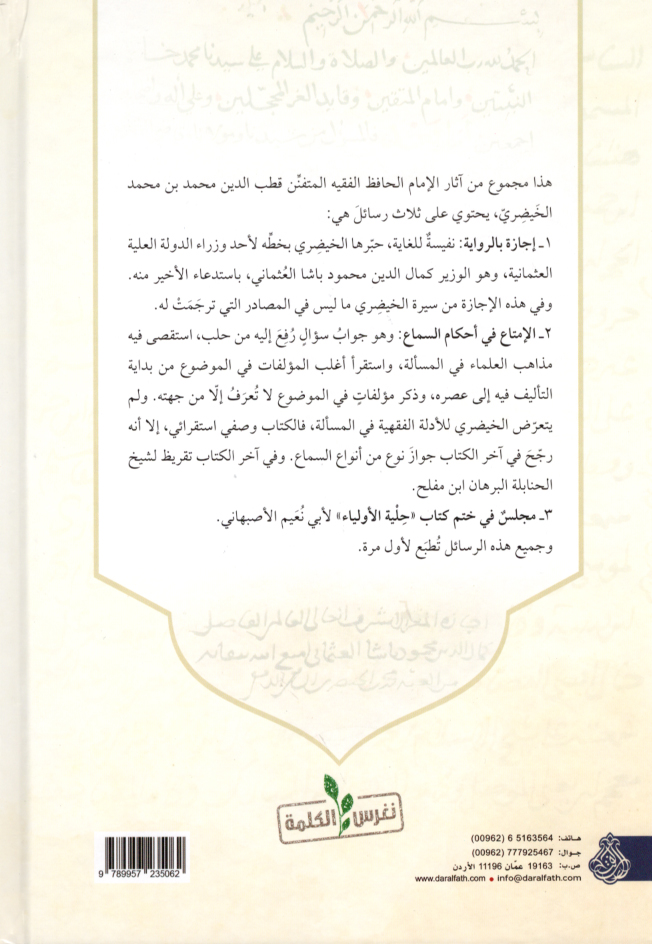 بسم الله الرحمن الرحيم
الحمد لله رب العالمين والصلاة والسلام على سيدنا محمد
النبيين وامام المتقين وقايد الغر المحجلين وعلى اله
هذا مجموع من آثار الإمام الحافظ الفقيه المتفنِّن قطب الدين محمد بن محمد
الخَيضِريّ، يحتوي على ثلاث رسائلَ هي:
١ـ إجازة بالرواية: نفيسةٌ للغاية، حبّرها الخيضِري بخطِّه لأحد وزراء الدولة العلية
العثمانية، وهو الوزير كمال الدين محمود باشا العُثماني، باستدعاء الأخير منه.
وفي هذه الإجازة من سيرة الخيضِري ما ليس في المصادر التي ترجَمَتْ له.
٢ـ الإمتاع في أحكام السماع: وهو جوابُ سؤالٍ رُفِعَ إليه من حلب، استقصى فيه
مذاهب العلماء في المسألة، واستقرأ أغلب المؤلفات في الموضوع من بداية
التأليف فيه إلى عصره، وذكر مؤلفاتٍ في الموضوع لا تُعرَفُ إلّا من جهته. ولم
يتعرّض الخيضري للأدلة الفقهية في المسألة، فالكتاب وصفي استقرائي، إلا أنه
رجّحَ في آخر الكتاب جوازَ نوع من أنواع السماع. وفي آخر الكتاب تقريظ لشيخ
الحنابلة البرهان ابن مفلح.
٣ـ مجلسٌ في ختم كتاب «حِلْية الأولياء» لأبي نُعَيم الأصبهاني.
وجميع هذه الرسائل تُطبَع لأول مرة.
نغرس الكلمة
هاتف: 5163564 6 (00962)
جوال: 777925467 (00962)
ص.ب: 19163 عمّان 11196 الأردن
www.daralfath.com • info@daralfath.com
9 789957 235062